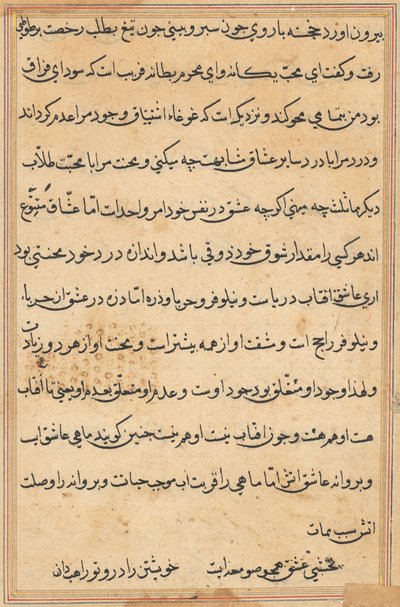 بیرون اورد خجسته با روی چون سپر و بینی چون تیغ بطلب رخصت بر طوطی
رفت و گفت ای محب یکانه و ای محرم بطانه قریب است که سودای فراق
بود من بتمامی محو کند و نزدیک است که غوغاء اشتیاق وجود مرا عدم کرداند
و درد مرا با درد سایر عشاق مشابهت چه میکنی و محنت مرا با محنت طلاب
دیکر مماثلث چه میهنی اکرچه عشق در نفس خود امر واحدات اما عشاق متنوع
اند هر کسی را مقدار شوق خود ذوقی باشد و اندازه درد خود محنتی بود
اری عاشق افتاب دریا ست و نیلوفر و حربا و ذره اما ذره در عشق از حربا
و نیلوفر راجح است و مشقت او از همه بیشتر است و محنت او از هر دو زیادت
و لهذا وجود او متعلق بوجود اوست و عدم او متعلق بعدم او یعنی تا افتاب
هست او هم هست و چون افتاب نیست او هم نیست چنین کویند ماهی عاشق ابست
و بروانه عاشق اتش اما ماهی را قربت اب موجب حیاتست و بروانه را وصلت
اتش سبب ممات
نخشبی عشق هم خصوصعه است خویشتن را درو تو راهب دانی